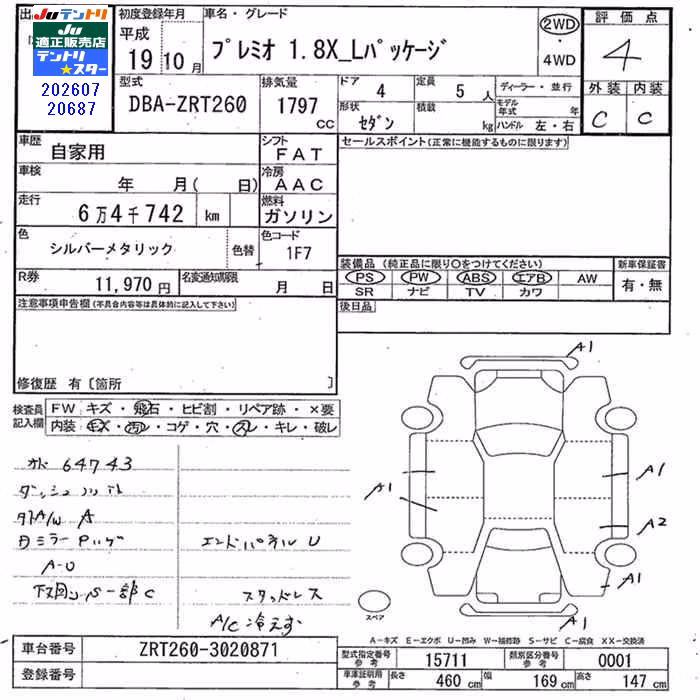 出
Juテントリ
Ju
適正販売店
テントリ
★スター
202607
20687
初度登録年月
平成
19 10 月
車名・グレード
プレミオ 1.8X_Lパッケージ
2WD
・
4WD
評価点
4
外装 内装
C C
型式
DBA-ZRT260
排気量
1797
cc
ドア
4
定員
5 人
形状
セダン
積載
kg
ディーラー・並行
モデル年式 年
ハンドル 左・右
車歴
自家用
シフト
FAT
車検
年 月( 日)
冷房
AAC
走行
6万4千742 km
燃料
ガソリン
色
シルバーメタリック
色替
色コード
1F7
R券
11,970 円
名変通知期限
月 日
セールスポイント(正常に機能するものに限ります)
装備品(純正品に限り〇をつけてください)
新車保証書
PS PW ABS エアB AW
SR ナビ TV カワ
有・無
後日品
注意事項申告欄(不具合内容等は具体的に記入して下さい)
修復歴 有〔箇所 〕
検査員
記入欄
FW キズ・飛石・ヒビ割・リペア跡・×要
内装 キズ・汚レ・コゲ・穴・スレ・キレ・破レ
64743
A/W A
A-U
エンドパネル U
スタッドレス
A/C 冷えず
A1
A1
A1
A2
A1
A1
スペア
A－キズ E－エクボ U－凹み W－補修跡 S－サビ C－腐食 XX－交換済
車台番号
ZRT260-3020871
登録番号
型式指定番号
参考
15711
類別区分番号
参考
0001
車庫証明用
参考
長さ
460 cm
幅
169 cm
高さ
147 cm